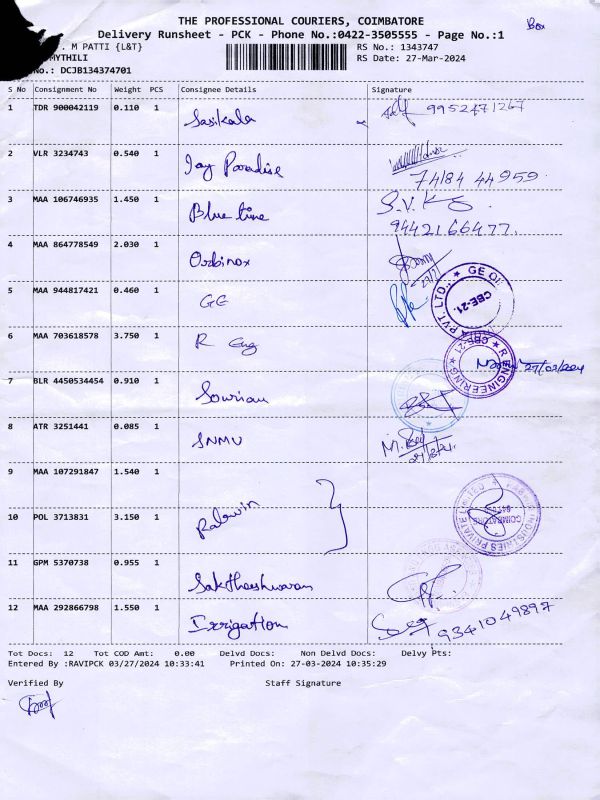 THE PROFESSIONAL COURIERS, COIMBATORE
Box
Delivery Runsheet - PCK - Phone No.:0422-3505555 - Page No.:1
. M PATTI {L&T}
RS No.: 1343747
MYTHILI
RS Date: 27-Mar-2024
No.: DCJB134374701
S No Consignment No Weight PCS Consignee Details Signature
1 TDR 900042119 0.110 1 Sasikala 9952471267
2 VLR 3234743 0.540 1 Jay Paradise
74184 44959
3 MAA 106746935 1.450 1 Blue time S.V.K
9442166477
4 MAA 864778549 2.030 1 Orbinox
27/3
5 MAA 944817421 0.460 1 GE
PVT. LTD., ★ GE OI
CBE-21.
6 MAA 703618578 3.750 1 R Eng
R ENGINEERING ★ CBE-21 ★
27/03/2024
7 BLR 4450534454 0.910 1 Souriau
8 ATR 3251441 0.085 1 SNMV
27/3/24
9 MAA 107291847 1.540 1
10 POL 3713831 3.150 1 Rabwin
RABWIN INDUSTRIES PRIVATE LIMITED
COIMBATORE
11 GPM 5370738 0.955 1 Saktheeshwaran
12 MAA 292866798 1.550 1 Irrigation 9341049897
Tot Docs: 12 Tot COD Amt: 0.00 Delvd Docs: Non Delvd Docs: Delvy Pts:
Entered By :RAVIPCK 03/27/2024 10:33:41 Printed On: 27-03-2024 10:35:29
Verified By Staff Signature